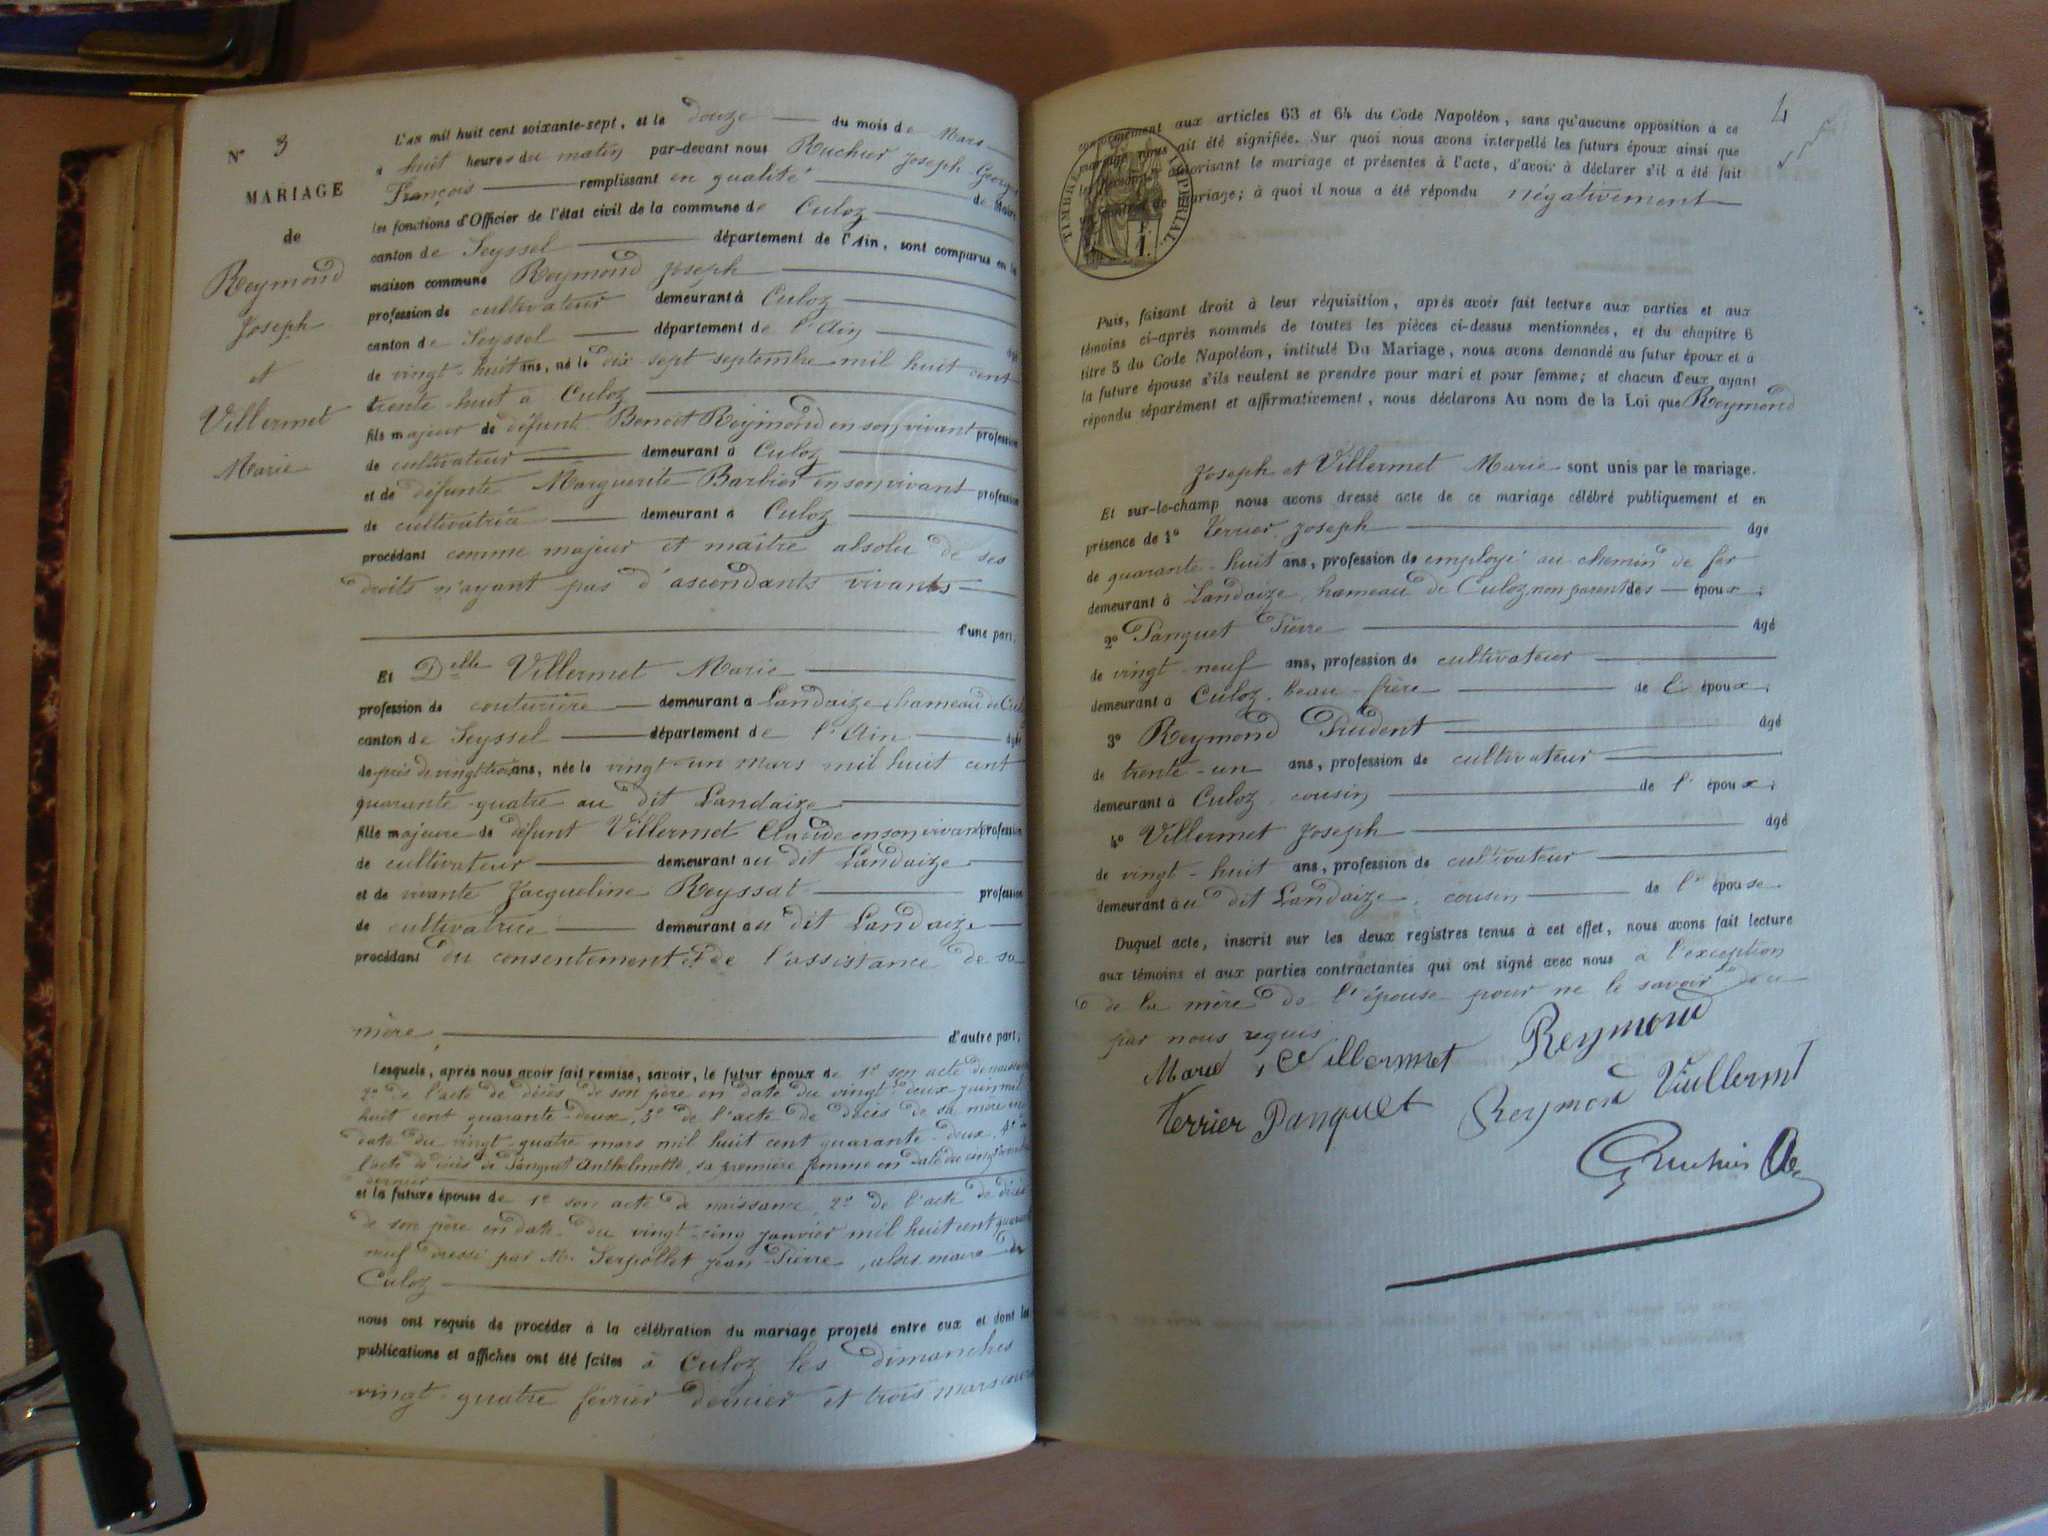 N° 3
MARIAGE
de
Reymond
Joseph
et
Villermet
Marie
L'an mil huit cent soixante-sept, et le douze du mois de Mars
à huit heures du matin par-devant nous Ruchier Joseph George
François remplissant en qualité de Maire
les fonctions d'Officier de l'état civil de la commune de Culoz
canton de Seyssel département de l'Ain, sont comparus en la
maison commune Reymond Joseph
profession de cultivateur demeurant à Culoz
canton de Seyssel département de l'Ain âgé
de vingt-huit ans, né le dix sept septembre mil huit cent
trente-huit à Culoz
fils majeur de défunt Benoit Reymond en son vivant profession
de cultivateur demeurant à Culoz
et de défunte Marguerite Barbier en son vivant profession
de cultivatrice demeurant à Culoz
procédant comme majeur et maître absolu de ses
droits n'ayant pas d'ascendants vivants
d'une part,
Et Delle Villermet Marie
profession de couturière demeurant à Landaize, hameau de Culoz
canton de Seyssel département de l'Ain âgé
de près de vingt trois ans, née le vingt-un mars mil huit cent
quarante-quatre au dit Landaize
fille majeure de défunt Villermet Claude en son vivant profession
de cultivateur demeurant au dit Landaize
et de vivante Jacqueline Reyssat profession
de cultivatrice demeurant au dit Landaize
procédant du consentement et de l'assistance de sa
mère, d'autre part,
Lesquels, après nous avoir fait remise, savoir, le futur époux de 1° son acte de naissance
2° de l'acte de décès de son père en date du vingt-deux juin mil
huit cent quarante-deux, 3° de l'acte de décès de sa mère en
date du vingt-quatre mars mil huit cent quarante-deux, 4° de
l'acte de décès de Panguet Anthelmette, sa première femme en date du cinq
dernier
et la future épouse de 1° son acte de naissance, 2° de l'acte de décès
de son père en date du vingt-cinq janvier mil huit cent quarante
neuf dressé par M. Serpollet Jean-Pierre, alors maire de
Culoz
nous ont requis de procéder à la célébration du mariage projeté entre eux et dont les
publications et affiches ont été faites à Culoz les dimanches
vingt-quatre février dernier et trois mars courant
4
TIMBRE IMPERIAL
conformément aux articles 63 et 64 du Code Napoléon, sans qu'aucune opposition à ce
mariage nous ait été signifiée. Sur quoi nous avons interpellé les futurs époux ainsi que
les personnes autorisant le mariage et présentes à l'acte, d'avoir à déclarer s'il a été fait
un contrat de mariage; à quoi il nous a été répondu négativement
Puis, faisant droit à leur réquisition, après avoir fait lecture aux parties et aux
témoins ci-après nommés de toutes les pièces ci-dessus mentionnées, et du chapitre 6
titre 5 du Code Napoléon, intitulé Du Mariage, nous avons demandé au futur époux et à
la future épouse s'ils veulent se prendre pour mari et pour femme; et chacun d'eux ayant
répondu séparément et affirmativement, nous déclarons Au nom de la Loi que Reymond
Joseph et Villermet Marie sont unis par le mariage.
Et sur-le-champ nous avons dressé acte de ce mariage célébré publiquement et en
présence de 1° Terrier Joseph âgé
de quarante-huit ans, profession de employé au chemin de fer
demeurant à Landaize, hameau de Culoz non parent des époux;
2° Panguet Pierre âgé
de vingt-neuf ans, profession de cultivateur
demeurant à Culoz, beau-frère de l' époux;
3° Reymond Prudent âgé
de trente-un ans, profession de cultivateur
demeurant à Culoz, cousin de l' époux;
4° Villermet Joseph âgé
de vingt-huit ans, profession de cultivateur
demeurant au dit Landaize, cousin de l'épouse
Duquel acte, inscrit sur les deux registres tenus à cet effet, nous avons fait lecture
aux témoins et aux parties contractantes qui ont signé avec nous à l'exception
de la mère de l'épouse pour ne le savoir de ce
par nous requis
Marie Villermet Reymond
Terrier Panguet Reymond Viullermt
Ruchier